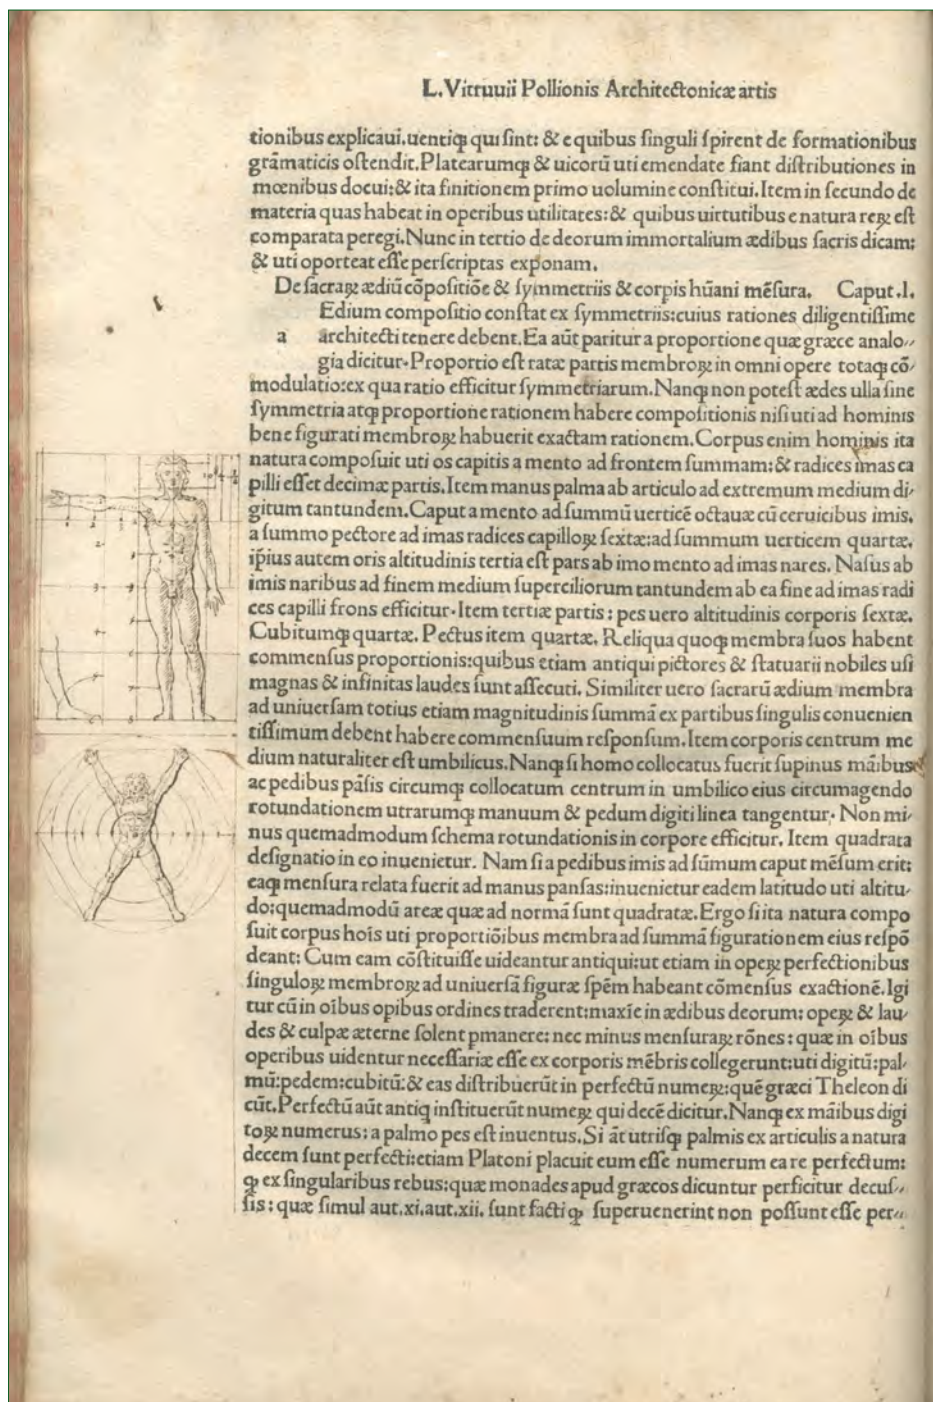 L.Vitruuii Pollionis Architectonicæ artis
tionibus explicaui.uentiqꝫ qui ſint: & e quibus ſinguli ſpirent de formationibus
grāmaticis oſtendit.Platearumqꝫ & uicorū uti emendate fiant diſtributiones in
mœnibus docui:& ita finitionem primo uolumine conſtitui.Item in ſecundo de
materia quas habeat in operibus utilitates:& quibus uirtutibus e natura reꝝ eſt
comparata peregi.Nunc in tertio de deorum immortalium ædibus ſacris dicam:
& uti oporteat eſſe perſcriptas exponam.
De ſacraꝝ ædiū cōpoſitiōe & ſymmetriis & corpis hūani mēſura. Caput.I.
Edium compoſitio conſtat ex ſymmetriis:cuius rationes diligentiſſime
a architecti tenere debent.Ea aūt paritur a proportione quæ græce analo⸗
gia dicitur.Proportio eſt ratæ partis membroꝝ in omni opere totaqꝫ cō⸗
modulatio:ex qua ratio efficitur ſymmetriarum.Nanqꝫ non poteſt ædes ulla ſine
ſymmetria atqꝫ proportione rationem habere compoſitionis niſi uti ad hominis
bene figurati membroꝝ habuerit exactam rationem.Corpus enim hominis ita
natura compoſuit uti os capitis a mento ad frontem ſummam:& radices imas ca
pilli eſſet decimæ partis.Item manus palma ab articulo ad extremum medium di⸗
gitum tantundem.Caput a mento ad ſummū uerticē octauæ cū ceruicibus imis.
a ſummo pectore ad imas radices capilloꝝ ſextæ:ad ſummum uerticem quartæ.
ip̄ius autem oris altitudinis tertia eſt pars ab imo mento ad imas nares. Naſus ab
imis naribus ad finem medium ſuperciliorum tantundem ab ea fine ad imas radi
ces capilli frons efficitur.Item tertiæ partis: pes uero altitudinis corporis ſextæ.
Cubitumqꝫ quartæ. Pectus item quartæ. Reliqua quoqꝫ membra ſuos habent
commenſus proportionis:quibus etiam antiqui pictores & ſtatuarii nobiles uſi
magnas & infinitas laudes ſunt aſſecuti. Similiter uero ſacrarū ædium membra
ad uniuerſam totius etiam magnitudinis ſummā ex partibus ſingulis conuenien
tiſſimum debent habere commenſuum reſponſum.Item corporis centrum me
dium naturaliter eſt umbilicus.Nanqꝫ ſi homo collocatus fuerit ſupinus māibus
ac pedibus pāſis circumqꝫ collocatum centrum in umbilico eius circumagendo
rotundationem utrarumqꝫ manuum & pedum digiti linea tangentur. Non mi⸗
nus quemadmodum ſchema rotundationis in corpore efficitur. Item quadrata
deſignatio in eo inuenietur. Nam ſi a pedibus imis ad ſūmum caput mēſum erit:
eaqꝫ menſura relata fuerit ad manus panſas:inuenietur eadem latitudo uti altitu⸗
do:quemadmodū areæ quæ ad normā ſunt quadratæ.Ergo ſi ita natura compo
ſuit corpus hoīs uti proportiōibus membra ad ſummā figurationem eius reſpō
deant: Cum eam cōſtituiſſe uideantur antiqui:ut etiam in opeꝝ perfectionibus
ſinguloꝝ membroꝝ ad uniuerſā figuræ ſpēm habeant cōmenſus exactionē.Igi
tur cū in oībus opibus ordines traderent:maxīe in ædibus deorum: opeꝝ & lau⸗
des & culpæ æterne ſolent pmanere: nec minus menſuraꝝ rōnes: quæ in oībus
operibus uidentur neceſſariæ eſſe ex corporis mēbris collegerunt:uti digitū:pal⸗
mū:pedem:cubitū:& eas diſtribuerūt in perfectū numeꝝ:quē græci Theleon di
cūt.Perfectū aūt antiq inſtituerūt numeꝝ qui decē dicitur.Nanqꝫ ex māibus digi
toꝝ numerus: a palmo pes eſt inuentus.Si āt utriſqꝫ palmis ex articulis a natura
decem ſunt perfecti:etiam Platoni placuit eum eſſe numerum ea re perfectum:
ꝙ ex ſingularibus rebus:quæ monades apud græcos dicuntur perficitur decuſ⸗
ſis: quæ ſimul aut.xi.aut.xii. ſunt facti ꝙ ſuperuenerint non poſſunt eſſe per⸗